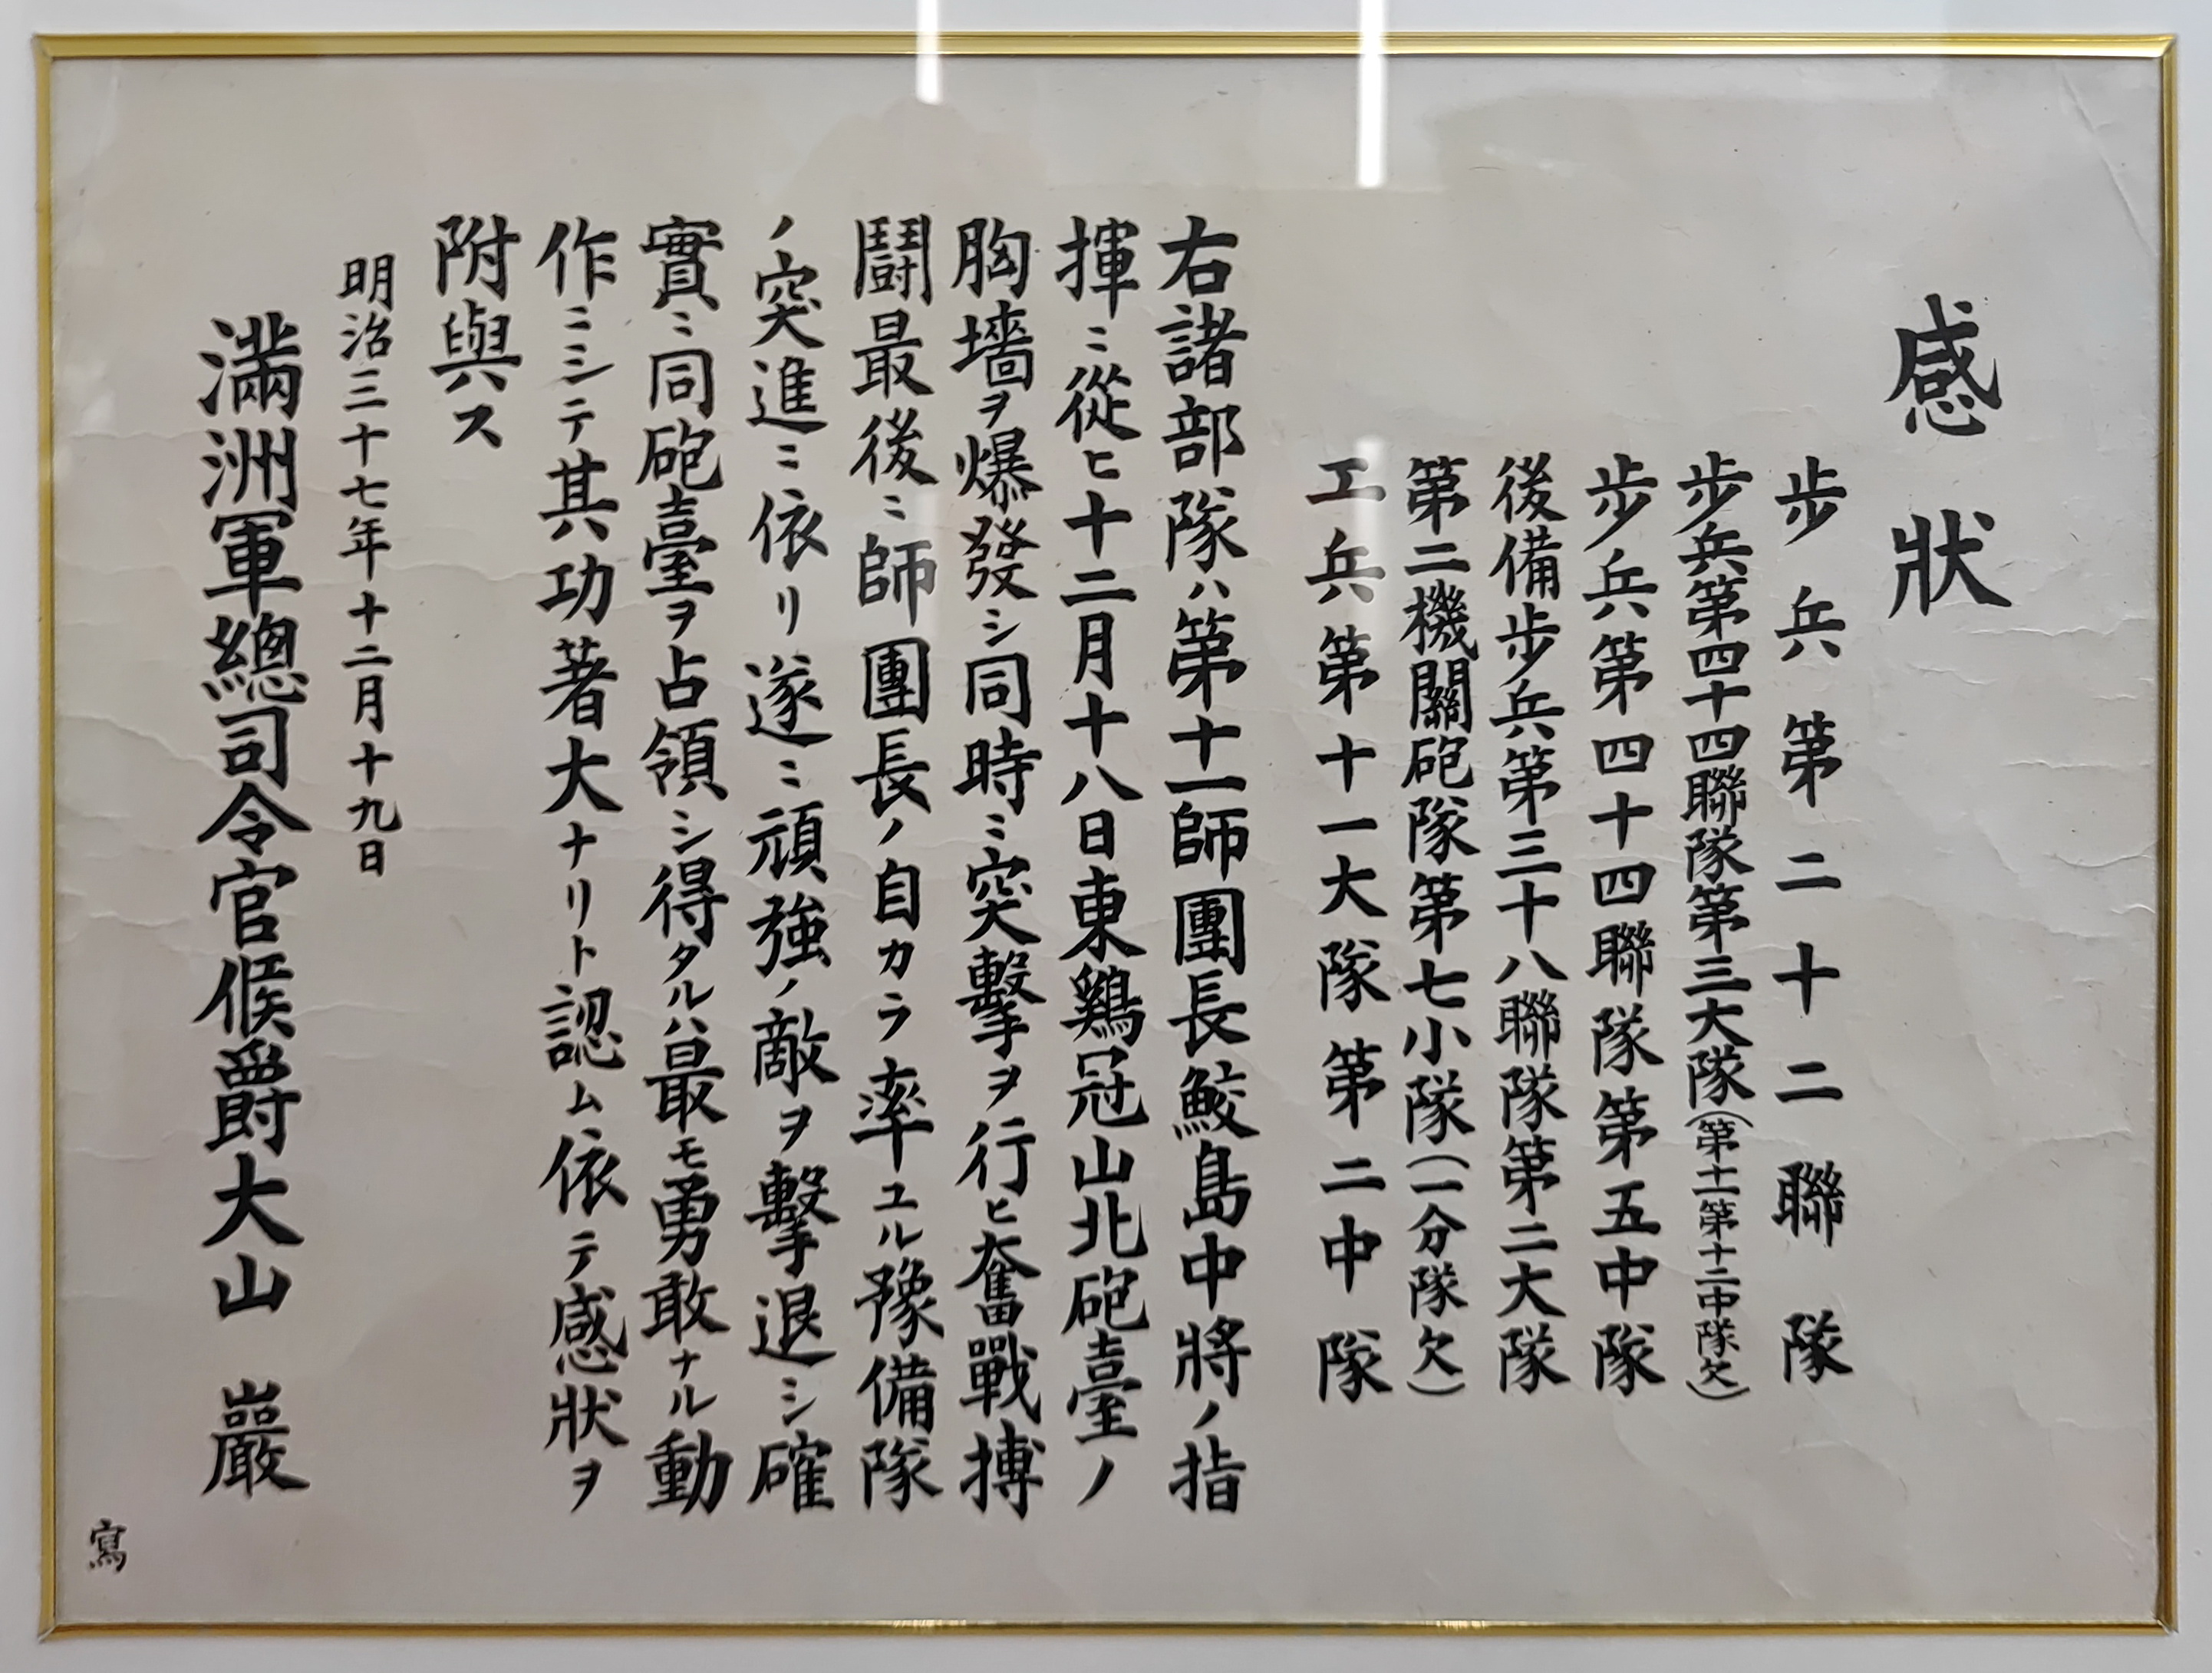 感狀
步兵第二十二聯隊
步兵第四十四聯隊第三大隊(第十一第十二中隊欠)
步兵第四十四聯隊第五中隊
後備步兵第三十八聯隊第二大隊
第二機關砲隊第七小隊(一分隊欠)
工兵第十一大隊第二中隊
右諸部隊ハ第十一師團長鮫島中將ノ指
揮ニ從ヒ十二月十八日東鷄冠山北砲臺ノ
胸墻ヲ爆發シ同時ニ突擊ヲ行ヒ奮戰搏
鬪最後ニ師團長ノ自カラ率ユル豫備隊
ノ突進ニ依リ遂ニ頑強ノ敵ヲ擊退シ確
實ニ同砲臺ヲ占領シ得タルハ最モ勇敢ナル動
作ニシテ其功著大ナリト認ム依テ感狀ヲ
附與ス
明治三十七年十二月十九日
滿洲軍總司令官候爵大山巖
寫